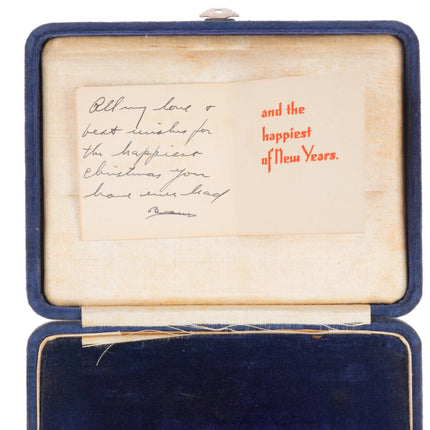 All my love &
best wishes for
the happiest
Christmas you
have ever had
and the
happiest
of New Years.